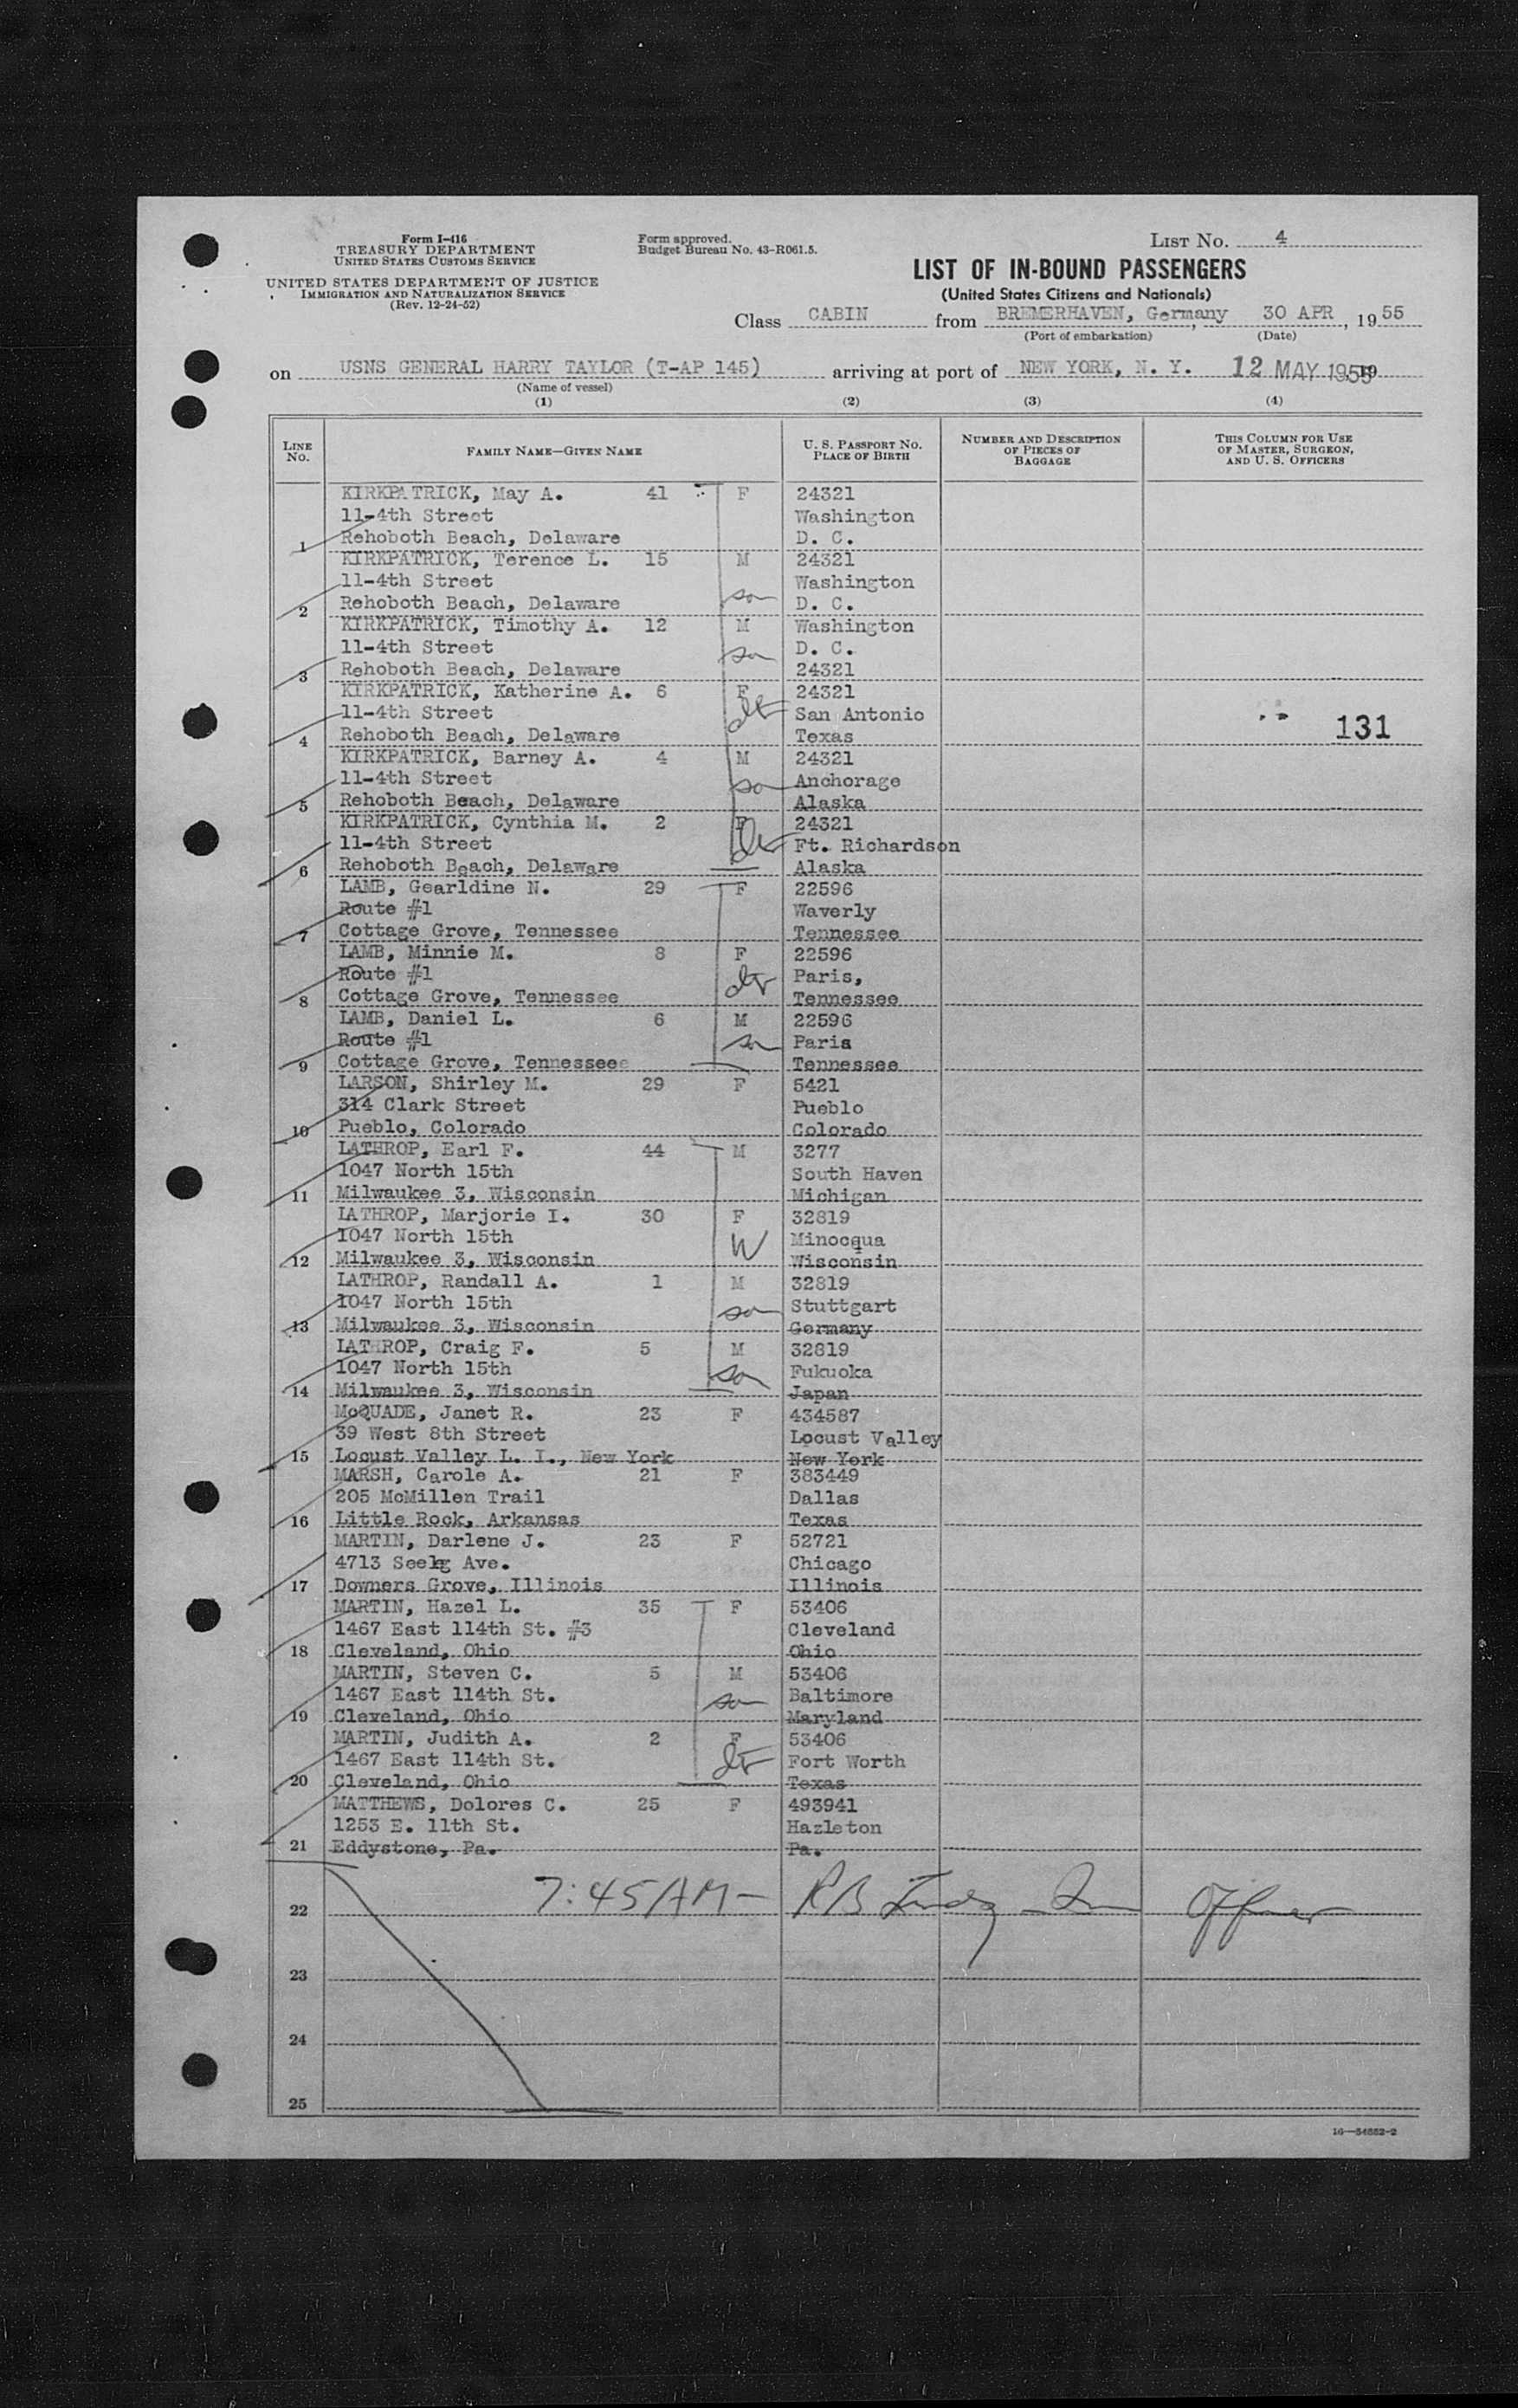 Form I-416
TREASURY DEPARTMENT
UNITED STATES CUSTOMS SERVICE
UNITED STATES DEPARTMENT OF JUSTICE
IMMIGRATION AND NATURALIZATION SERVICE
(Rev. 12-24-52)
Form approved.
Budget Bureau No. 43-R061.5.
LIST NO. 4
LIST OF IN-BOUND PASSENGERS
(United States Citizens and Nationals)
Class CABIN from BREMERHAVEN, Germany, 30 APR, 1955
(Port of embarkation) (Date)
on USNS GENERAL HARRY TAYLOR (T-AP 145) arriving at port of NEW YORK, N. Y. 12 MAY 1955 19
(Name of vessel)
(1) (2) (3) (4)
LINE NO. FAMILY NAME—GIVEN NAME U. S. PASSPORT NO. PLACE OF BIRTH NUMBER AND DESCRIPTION OF PIECES OF BAGGAGE THIS COLUMN FOR USE OF MASTER, SURGEON, AND U. S. OFFICERS
KIRKPATRICK, May A. 41 F 24321
11-4th Street Washington
1 Rehoboth Beach, Delaware D. C.
KIRKPATRICK, Terence L. 15 M 24321
11-4th Street Washington
2 Rehoboth Beach, Delaware son D. C.
KIRKPATRICK, Timothy A. 12 M Washington
11-4th Street son D. C.
3 Rehoboth Beach, Delaware 24321
KIRKPATRICK, Katherine A. 6 F 24321
11-4th Street dtr San Antonio
4 Rehoboth Beach, Delaware Texas 131
KIRKPATRICK, Barney A. 4 M 24321
11-4th Street son Anchorage
5 Rehoboth Beach, Delaware Alaska
KIRKPATRICK, Cynthia M. 2 F 24321
11-4th Street dtr Ft. Richardson
6 Rehoboth Beach, Delaware Alaska
LAMB, Gearldine N. 29 F 22596
Route #1 Waverly
7 Cottage Grove, Tennessee Tennessee
LAMB, Minnie M. 8 F 22596
Route #1 dtr Paris,
8 Cottage Grove, Tennessee Tennessee
LAMB, Daniel L. 6 M 22596
Route #1 son Paris
9 Cottage Grove, Tennessee Tennessee
LARSON, Shirley M. 29 F 5421
314 Clark Street Pueblo
10 Pueblo, Colorado Colorado
LATHROP, Earl F. 44 M 3277
1047 North 15th South Haven
11 Milwaukee 3, Wisconsin Michigan
LATHROP, Marjorie I. 30 F 32819
1047 North 15th W Minocqua
12 Milwaukee 3, Wisconsin Wisconsin
LATHROP, Randall A. 1 M 32819
1047 North 15th son Stuttgart
13 Milwaukee 3, Wisconsin Germany
LATHROP, Craig F. 5 M 32819
1047 North 15th son Fukuoka
14 Milwaukee 3, Wisconsin Japan
McQUADE, Janet R. 23 F 434587
39 West 8th Street Locust Valley
15 Locust Valley L. I., New York New York
MARSH, Carole A. 21 F 383449
205 McMillen Trail Dallas
16 Little Rock, Arkansas Texas
MARTIN, Darlene J. 23 F 52721
4713 Ave. Chicago
17 Downers Grove, Illinois Illinois
MARTIN, Hazel L. 35 F 53406
1467 East 114th St. #3 Cleveland
18 Cleveland, Ohio Ohio
MARTIN, Steven C. 5 M 53406
1467 East 114th St. son Baltimore
19 Cleveland, Ohio Maryland
MARTIN, Judith A. 2 F 53406
1467 East 114th St. dtr Fort Worth
20 Cleveland, Ohio Texas
MATTHEWS, Dolores C. 25 F 493941
1253 E. 11th St. Hazleton
21 Eddystone, Pa. Pa.
22 7:45 AM — RB Officer
23
24
25
16—54852-2